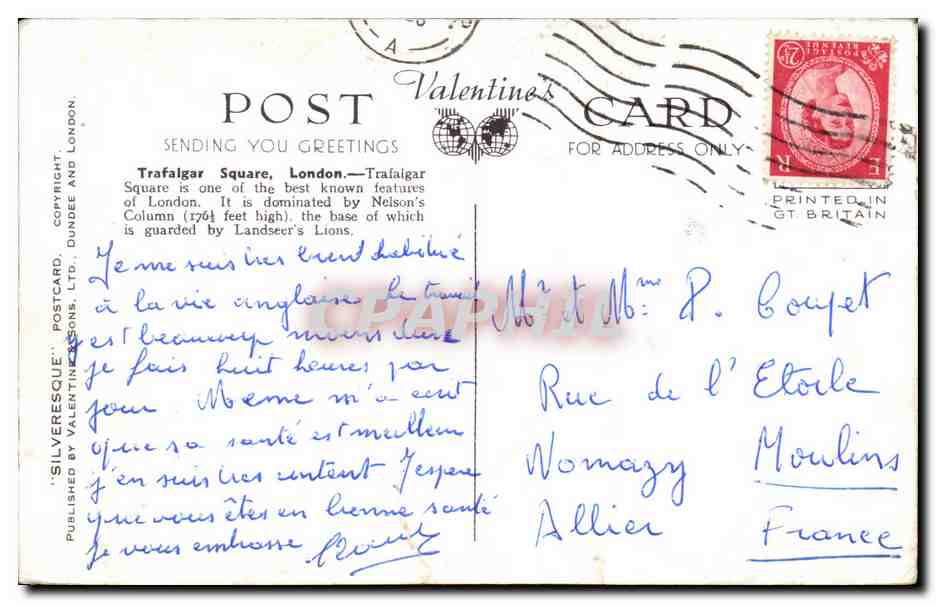 POST Valentine's CARD
SENDING YOU GREETINGS
FOR ADDRESS ONLY
Trafalgar Square, London.—Trafalgar
Square is one of the best known features
of London. It is dominated by Nelson's
Column (176½ feet high), the base of which
is guarded by Landseer's Lions.
Je me suis très bien habitué
à la vie anglaise le travail
y est beaucoup moins dur
je fais huit heures par
jour Meme m'a ecrit
que sa santé est meilleur
j'en suis très content J'espere
que vous êtes en bonne santé
je vous embrasse
Mr et Mme P. Coupet
Rue de l'Etoile
Nomazy Moulins
Allier France
"SILVERESQUE" POSTCARD. COPYRIGHT.
PUBLISHED BY VALENTINE & SONS, LTD., DUNDEE AND LONDON.
PRINTED IN
GT. BRITAIN
E R
POSTAGE
REVENUE
2½D
A
CPAPHIL